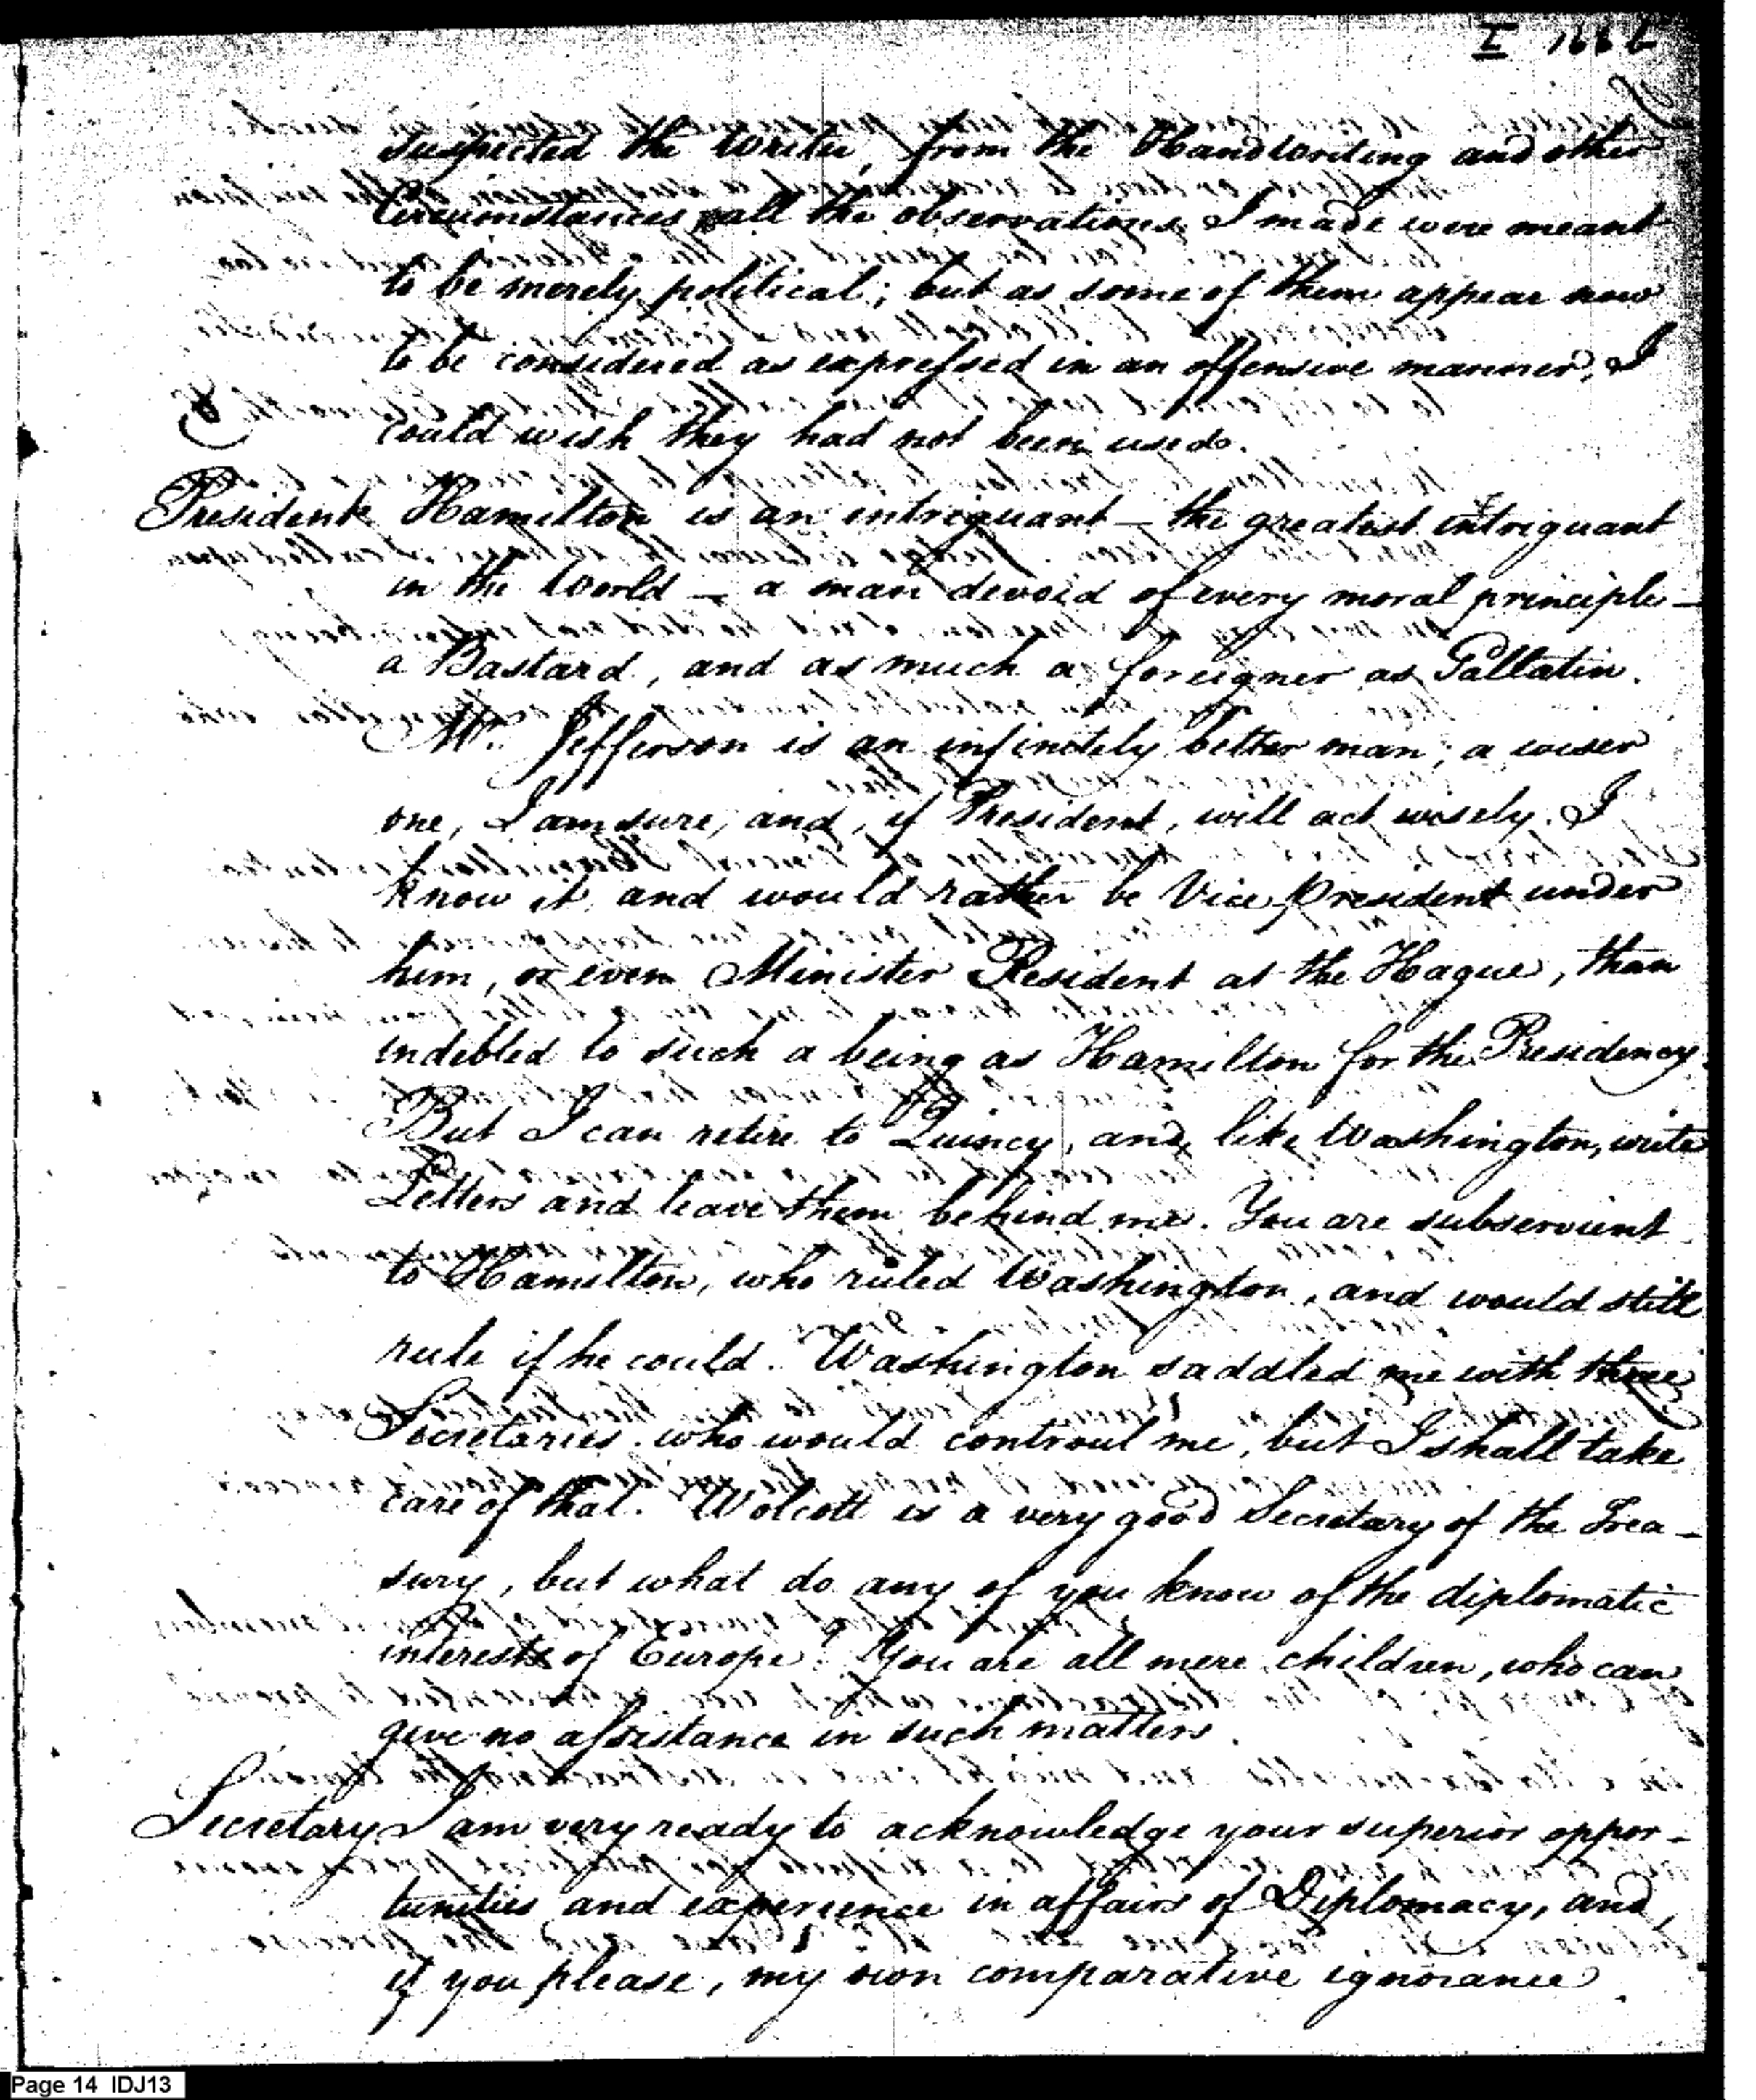 suspected the Writer, from the HandWriting and other
Circumstances, all the observations I made were meant
to be merely political; but as some of them appear now
to be considered as expressed in an offensive manner, I
could wish they had not been used.
President Hamilton is an intriguant — the greatest intriguant
in the World — a man devoid of every moral principle —
a Bastard, and as much a foreigner as Gallatin.
Mr. Jefferson is an infinitely better man; a wiser
one, I am sure, and, if President, will act wisely. I
know it, and would rather be Vice President under
him, or even Minister Resident at the Hague, than
indebted to such a being as Hamilton for the Presidency.
But I can retire to Quincy, and, like Washington, write
Letters and leave them behind me. You are subservient
to Hamilton, who ruled Washington, and would still
rule if he could. Washington saddled me with three
Secretaries who would controul me, but I shall take
care of that. Wolcott is a very good Secretary of the Trea-
sury, but what do any of you know of the diplomatic
interests of Europe? You are all mere children, who can
give no assistance in such matters.
Secretary I am very ready to acknowledge your superior oppor-
tunities and experience in affairs of Diplomacy, and,
if you please, my own comparative ignorance.
Page 14 IDJ13